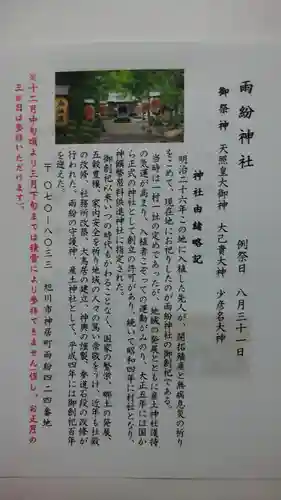 雨紛神社
例祭日 八月三十一日
御祭神 天照皇大御神 大己貴大神 少彦名大神
神社由緒略記
明治二十六年この地に入植した先人が、開拓殖産と無病息災の祈り
をこめて、現在地にお祀りしたのが雨紛神社の御創祀である。
当時は一村一社の定めであったが、地域の発展とともに産土神社護持
の気運が高まり、入植者こぞっての運動がみのり、大正五年には国か
ら正式の神社として創立の許可があり、続いて昭和四年に村社となり、
神饌幣帛料供進神社に指定された。
御創祀以来いつの時代もかわることなく、国家の繁栄、郷土の発展、
五穀豊穣、家内安全を祈り地域の人々の篤い崇敬をうけ、近年も社殿
の改修、社務所改築、大鳥居の建立、神輿の謹製、参道石段の改修が
行われた。雨紛の守護神、産土神社として、平成四年には御創祀百年
を迎えた。
〒〇七〇-八〇三三 旭川市神居町雨紛四二四番地
※十二月中旬頃より三月下旬までは積雪により参拝できません(但し、お正月の
三が日は参拝いただけます)。